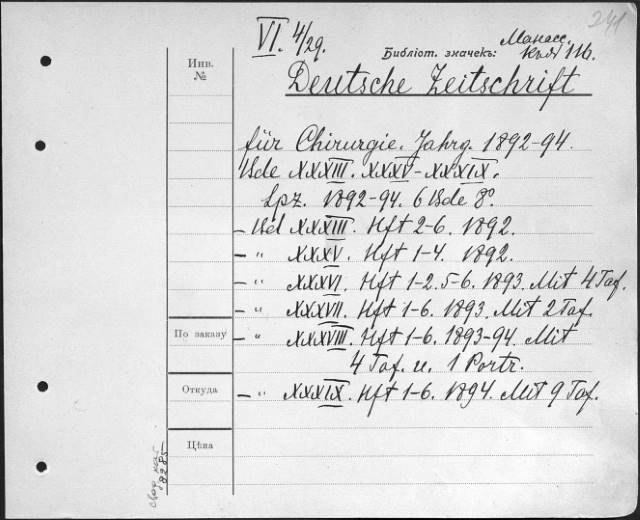 241
VI. 4/29.
Библіот. значекъ: Манасс. къя 116.
Инв. №
Deutsche Zeitschrift
für Chirurgie. Jahrg. 1892-94.
Bde XXXIII. XXXV-XXXIX.
Lpz. 1892-94. 6 Bde 8°.
– Bd XXXIII. Hft 2-6. 1892.
– " XXXV. Hft 1-4. 1892.
– " XXXVI. Hft 1-2. 5-6. 1893. Mit 4 Taf.
– " XXXVII. Hft 1-6. 1893. Mit 2 Taf.
По заказу
– " XXXVIII. Hft 1-6. 1893-94. Mit
4 Taf. u. 1 Portr.
Откуда
– " XXXIX. Hft 1-6. 1894. Mit 9 Taf.
Цѣна
8285